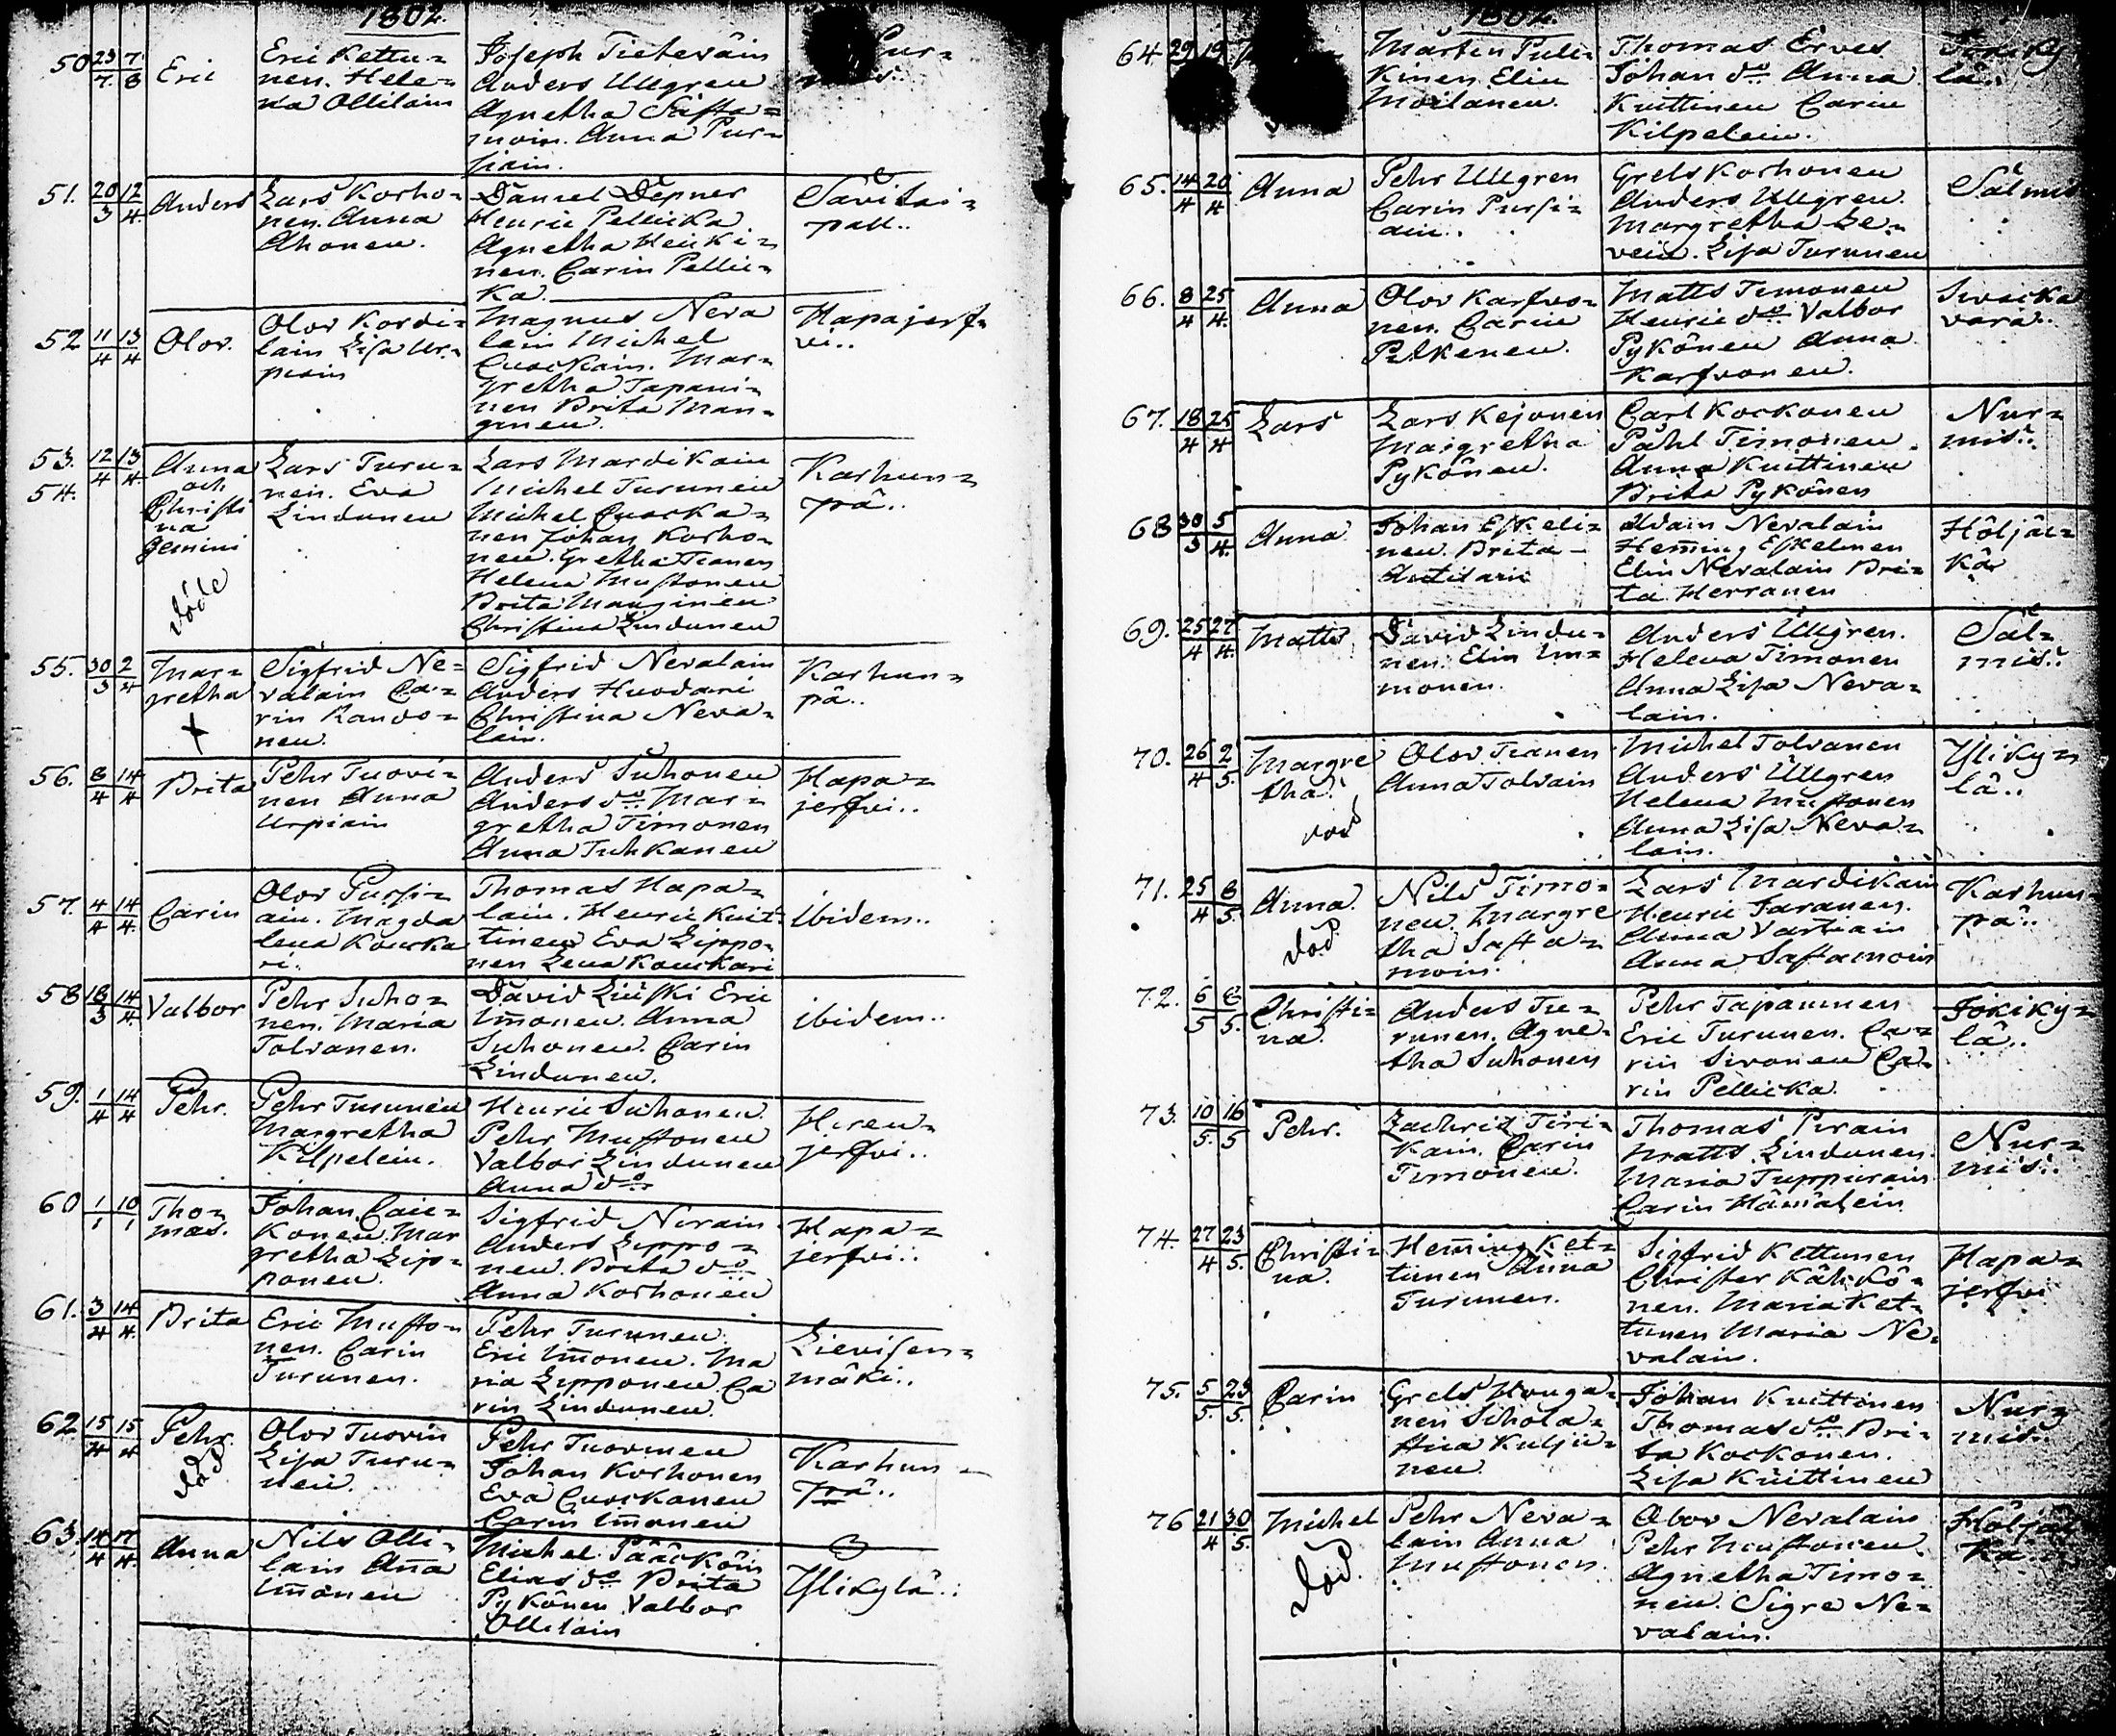 1802.
50 23/7 7/8 Eric
Eric Kettu=
nen. Hele=
na Ollilain
Joseph Tieteväin
Anders Ullgren
Agnetha Safta=
moin. Anna Pur=
siain.
51. 20/3 12/4 Anders
Lars Korho=
nen. Anna
Ahonen.
Daniel Depner
Henric Pellicka
Agnetha Heicki=
nen. Carin Pellic=
ka.
Savikai=
pall..
52 11/4 13/4 Olov.
Olov Kordi=
lain Lisa Ur=
piain
Magnus Neva
lain Michel
Cuockain. Mar=
gretha Tapani=
nen Brita Man=
ginen.
Hapajerf=
vi..
53. 12/4 13/4
54.
Anna
och
Christi
na
gemini
döde
Lars Turu=
nen. Eva
Lindunen
Lars Mardikain
Michel Turunen
Michel Cuocka=
nen Johan Korho=
nen. Gretha Tianen
Helena Mustonen
Brita Manginen
Christina Lindunen
Karhun=
pä..
55. 30/3 2/4
Mar=
gretha
X
Sigfrid Ne=
valain Ca=
rin Rando=
nen.
Sigfrid Nevalain
Anders Huodari
Christina Neva=
lain.
Karhun=
pä..
56. 8/4 14/4 Brita
Pehr Tuovi=
nen Anna
Urpiain
Anders Suhonen
Anders do Mar=
gretha Timonen
Anna Tuhkanen
Hapa=
jerfvi..
57. 4/4 14/4 Carin
Olov Pursi=
ain. Magda
lena Kouska
ri.
Thomas Hapa=
lain. Henric Kuit=
tinen Eva Lippo=
nen Lena Kouskari
ibidem..
58 18/3 14/4 Valbor
Pehr Suho=
nen. Maria
Tolvanen.
David Liüski Eric
Im̄onen. Anna
Suhonen. Carin
Lindunen.
ibidem..
59. 1/4 14/4 Pehr.
Pehr Turunen
Margretha
Kilpelein.
Henric Suhonen.
Pehr Mustonen
Valbor Lindunen
Anna do
Hiren=
jerfvi..
60 1/1 10/1
Tho=
mas.
Johan Caic=
konen. Mar
gretha Lip=
ponen.
Sigfrid Nirain
Anders Lippo=
nen. Brita do
Anna Korhonen
Hapa=
jerfvi..
61. 3/4 14/4 Brita
Eric Musto=
nen. Carin
Turunen.
Pehr Turunen
Eric Im̄onen. Ma
ria Lipponen Ca
rin Lindunen.
Lievisen=
mäki..
62 15/4 15/4 Pehr.
död
Olov Tuovin
Lisa Turu=
nen.
Pehr Tuovinen
Johan Korhonen
Eva Cuockanen
Carin Im̄onen
Karhun=
pä..
63. 14/4 17/4 Anna
Nils Olli=
lain An̄a
Im̄onen
Michel Pääcköin
Elias do Brita
Pykönen Valbor
Ollilain
Ylikylä..
1802.
64 29 19
Mårten Puli=
kinen Elin
Moilanen.
Thomas Erves
Johan do Anna
Kuittinen Carin
Kilpelein.
lä..
65. 14/4 20/4 Anna
Pehr Ullgren
Carin Pursi=
ain..
Grels Korhonen
Anders Ullgren.
Margretha Le=
vein. Lisa Turunen
Salmis
66. 8/4 25/4 Anna
Olov Karfvo=
nen. Carin
Pitkenen.
Matts Timonen
Henric do Valbor
Pykönen Anna
Karfvonen.
Sivacka
vara..
67. 18/4 25/4 Lars
Lars Kejonen
Margretha
Pykönen.
Carl Kockonen
Påhl Timonen.
Anna Kuittinen
Brita Pykönen
Nur=
mis..
68 30/3 5/4 Anna
Johan Eskeli=
nen. Brita
Antilain
Adam Nevalain
Hem̄ing Eskelinen
Elin Nevalain Bri=
ta Herranen
Höljäc=
kä
69. 25/4 27/4 Matts
David Lindu=
nen. Elin Im=
monen.
Anders Ullgren.
Helena Timonen
Anna Lisa Neva=
lain.
Sal=
mis..
70. 26/4 2/5
Margre
tha.
död
Olov Tianen
Anna Tolvain
Michel Tolvanen
Anders Ullgren
Helena Mustonen
Anna Lisa Neva=
lain.
Yliky=
lä..
71. 25/4 8/5 Anna.
död
Nils Timo=
nen. Margre
tha Safta=
moin.
Lars Mardikain
Henric Jaranen.
Anna Vartiain
Anna Saftamoin
Karhun=
pä..
72. 6/5 8/5
Christi=
na.
Anders Tu=
runen. Agne=
tha Suhonen
Pehr Tapaninen
Eric Turunen. Ca=
rin Sivonen Ca=
rin Pellicka.
Jokiky=
lä..
73. 10/5 16/5 Pehr.
Zachris Tiri=
kain. Carin
Timonen.
Thomas Pirain
Matts Lindunen.
Maria Tuppurain
Carin Hämälein
Nur=
mis..
74. 27/4 23/5
Christi=
na.
Hem̄ing Ket=
tunen Anna
Turunen.
Sigfrid Kettunen
Christer Kähkö=
nen. Maria Ket=
tunen Maria Ne=
valain.
Hapa=
jerfvi
75. 5/5 23/5 Carin
Grels Houga=
nen Schola=
stica Kuljü=
nen.
Johan Kuittinen
Thomas do Bri=
ta Kockonen.
Lisa Kuittinen
Nur=
mis..
76 21/4 30/5 Michel
död.
Pehr Neva=
lain Anna
Mustonen.
Olov Nevalain
Pehr Mustonen.
Agnetha Timo=
nen. Sigre Ne=
valain.
Höljäc
kä..